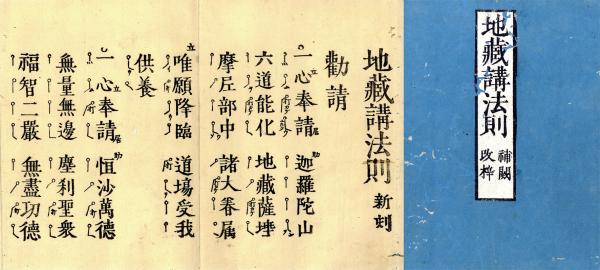 地藏講法則 補闕
改梓
地藏講法則 新刻
勸請
一心奉請 迦羅陀山
六道能化 地藏薩埵
摩尼部中 諸大眷属
立
唯願降臨 道場受我
供養
一心奉請 恒沙萬德
無量無邊 塵刹聖衆
福智二嚴 無盡功德